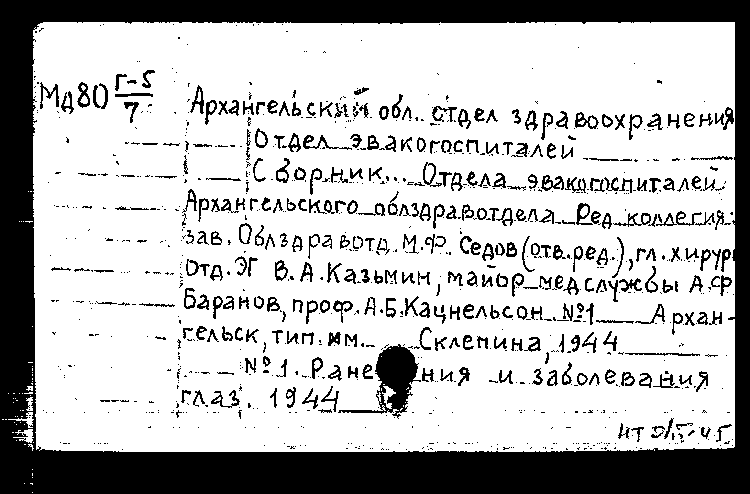 Мд80 Г-5/7
Архангельский обл. отдел здравоохранения
Отдел эвакогоспиталей
Сборник... Отдела эвакогоспиталей
Архангельского облздравотдела Ред. коллегия:
зав. Облздравотд. М.Ф. Седов (отв. ред.), гл. хирург
Отд. ЭГ В.А. Казьмин, майор медслужбы А.Ф.
Баранов, проф. А.Б. Кацнельсон. №1 Архан-
гельск, тип. им. Склепина, 1944
№1. Ранения и заболевания
глаз. 1944